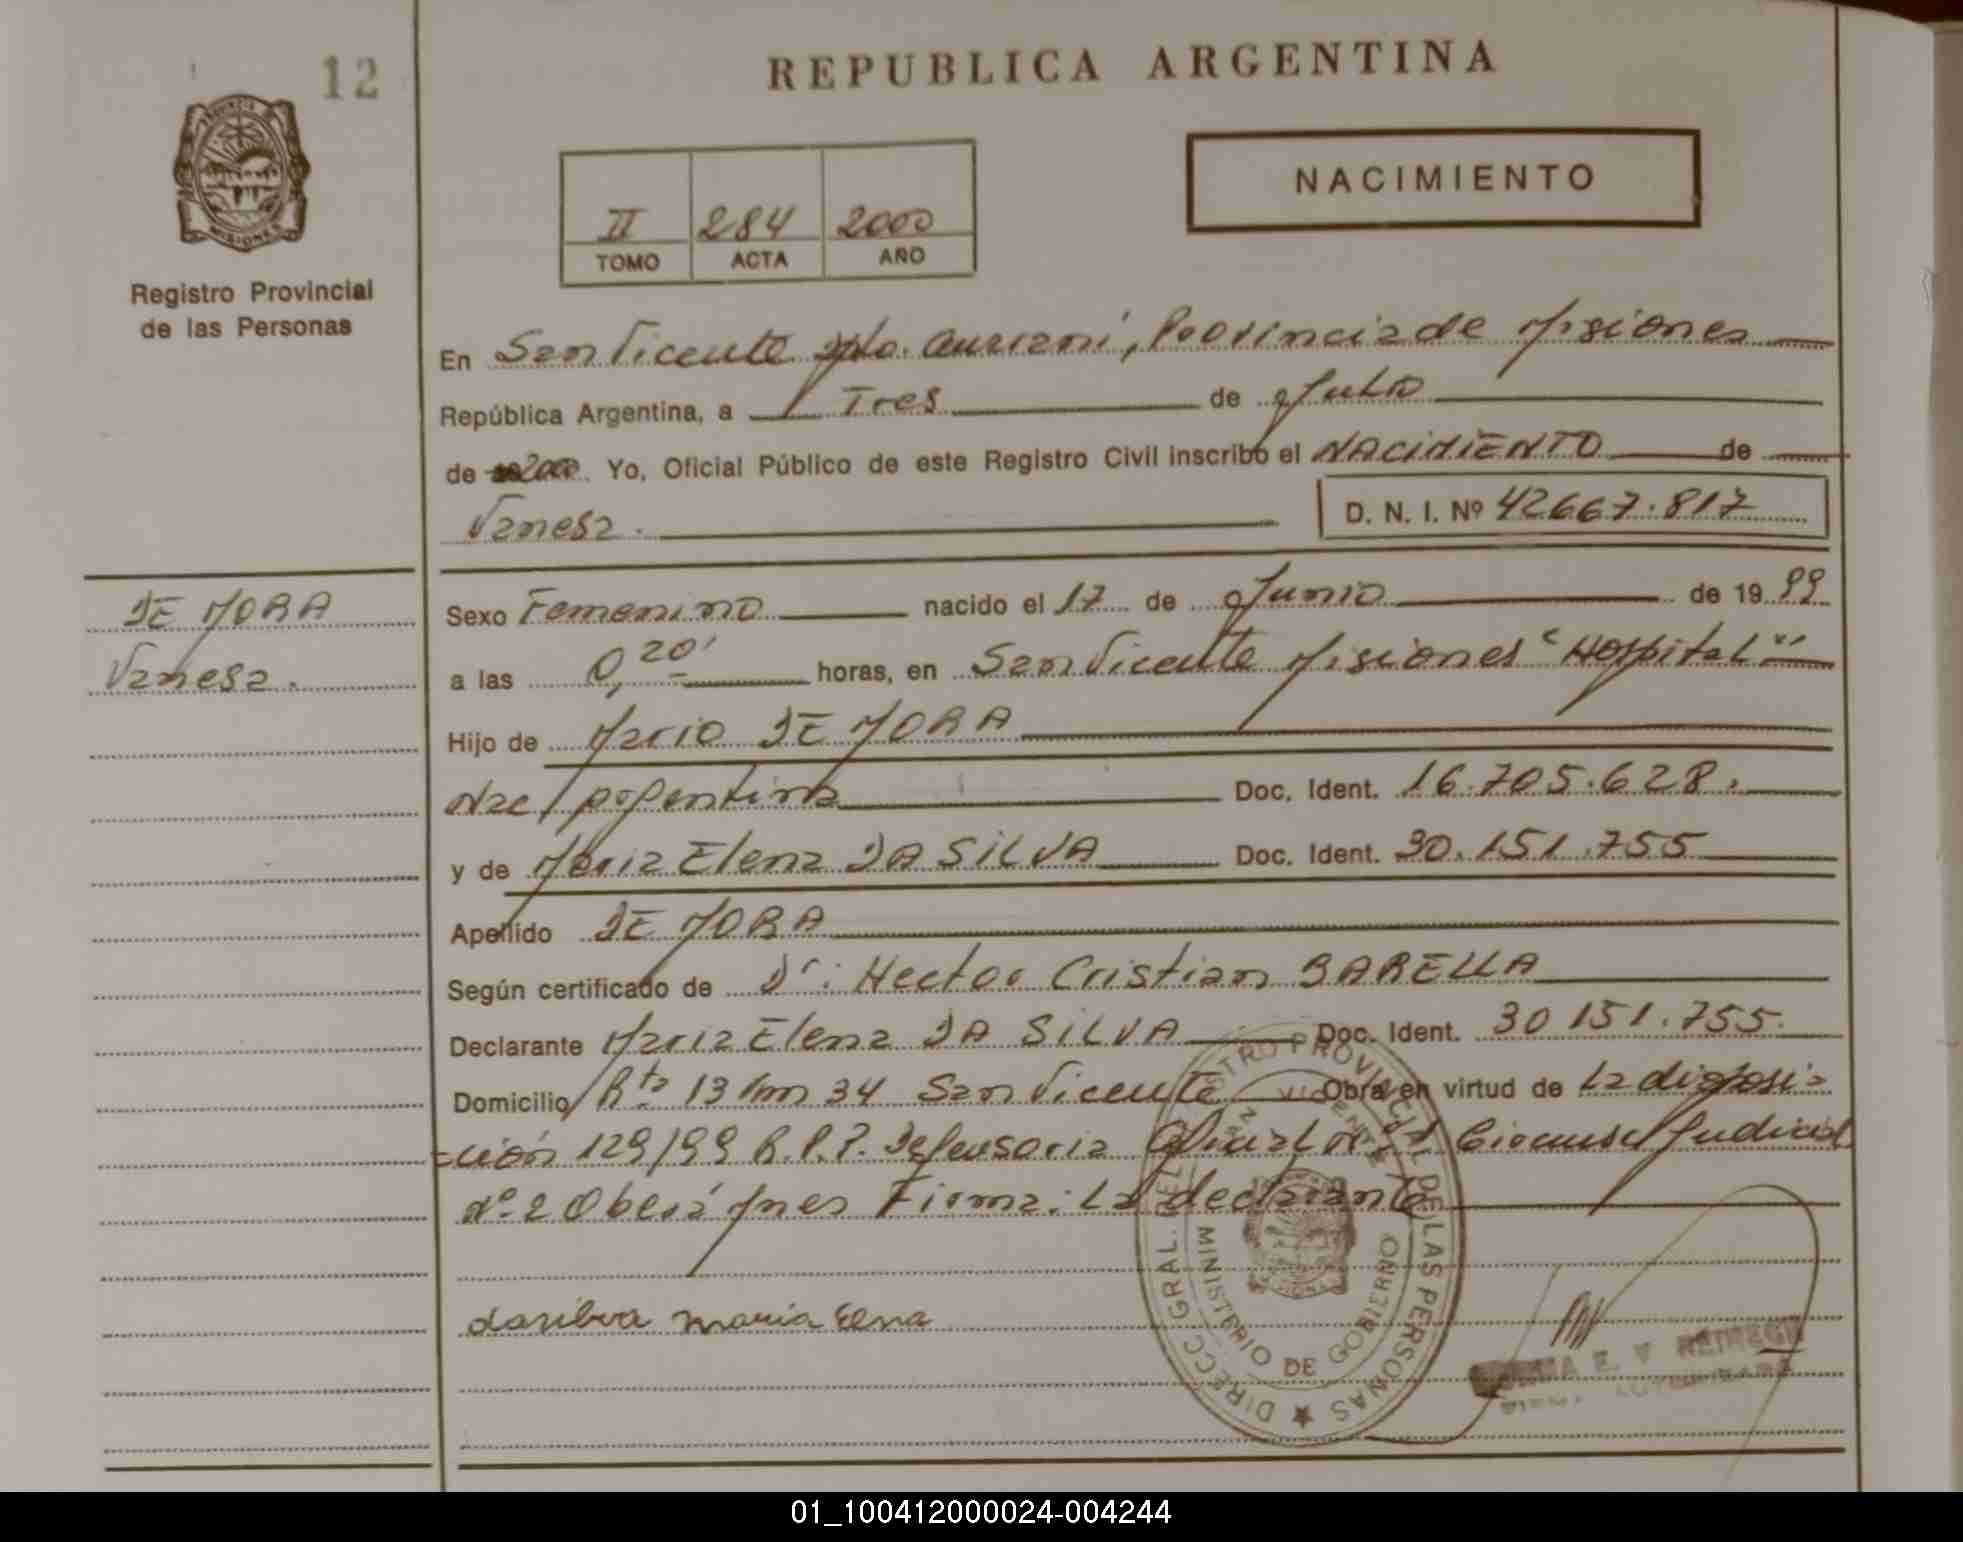 12
REPUBLICA ARGENTINA
NACIMIENTO
II 284 2000
TOMO ACTA AÑO
PROVINCIA DE
MISIONES
Registro Provincial
de las Personas
En San Vicente Dpto. Guaraní, Provincia de Misiones
República Argentina, a Tres de Julio
de 2000. Yo, Oficial Público de este Registro Civil inscribo el NACIMIENTO de
Vanesa. D. N. I. Nº 42667.817
DE MORA
Vanesa.
Sexo Femenino nacido el 17 de Junio de 1999
a las 0,20' horas, en San Vicente Misiones "Hospital"
Hijo de Mario DE MORA
Nac/ Argentina Doc. Ident. 16.705.628.
y de Maria Elena DA SILVA Doc. Ident. 30.151.755
Apellido DE MORA
Según certificado de Dr: Hector Cristian BARELLA
Declarante Maria Elena DA SILVA Doc. Ident. 30 151.755.
Domicilio Rta 13 km 34 San Vicente Obra en virtud de La disposi-
ción 129/99 R.P.P. Defensoria Oficial Nº 1 Circunsc Judicial
Nº 2 Oberá Mnes Firma: La declarante
dasilva maria Elena
DIRECC GRAL. DEL REGISTRO PROVINCIAL DE LAS PERSONAS
SAN VICENTE
MINISTERIO DE GOBIERNO
E. V
01_100412000024-004244